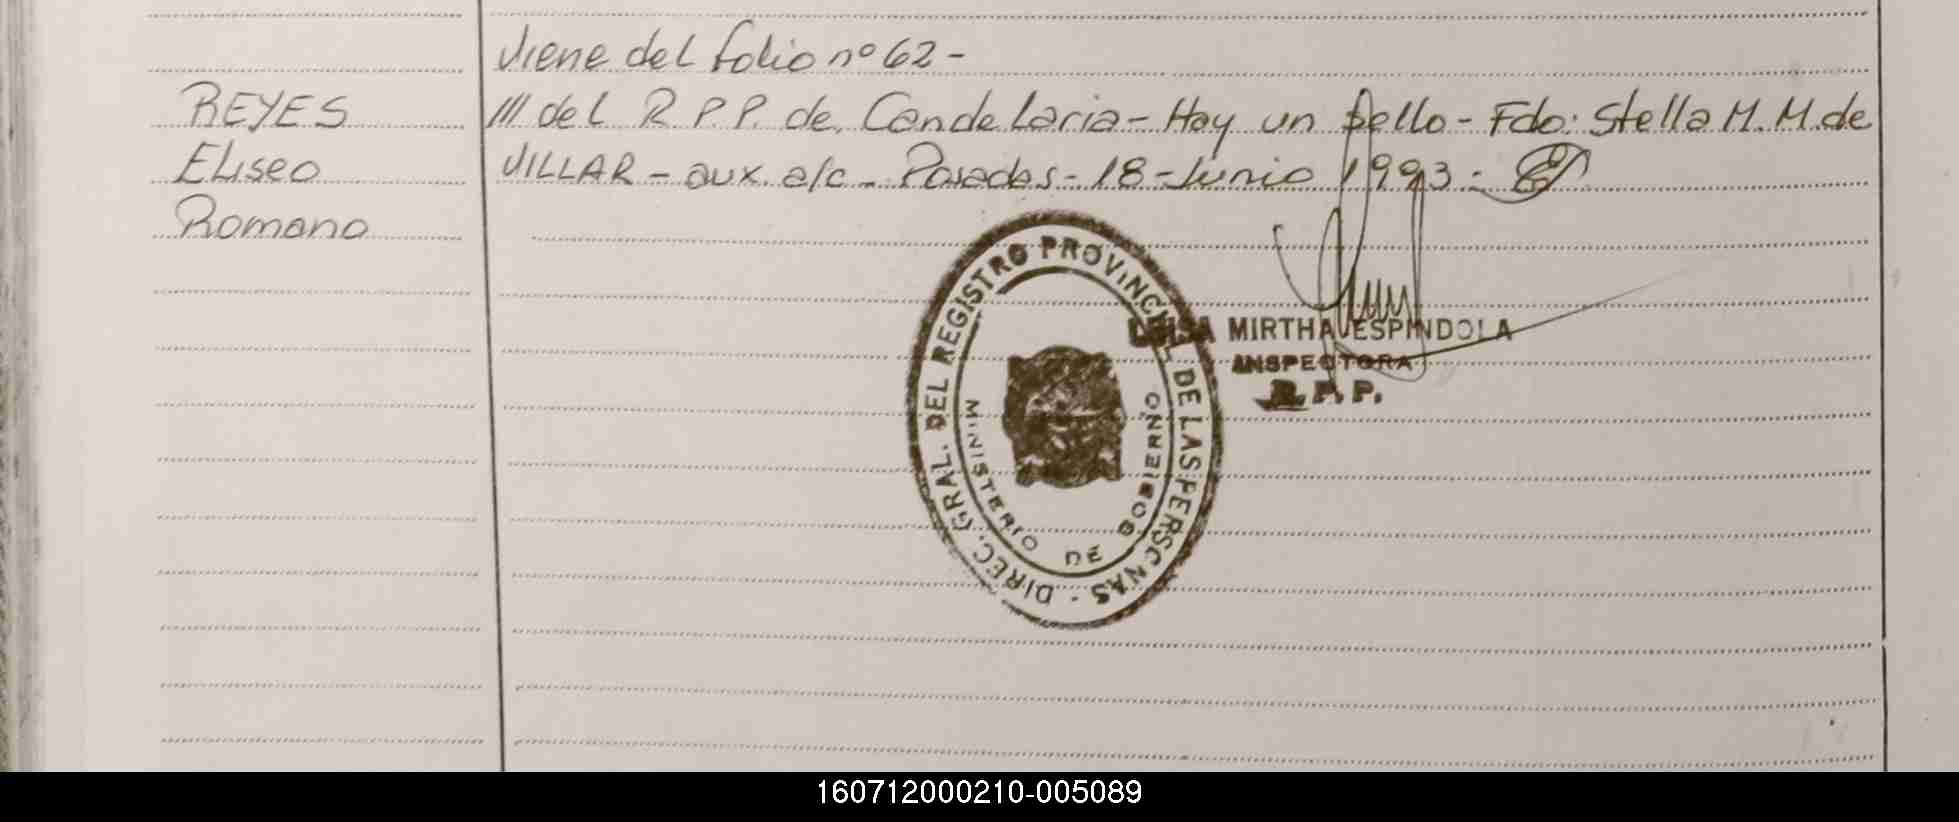 Viene del folio nº 62 -
REYES
/// del R.P.P. de Candelaria - Hay un sello - Fdo: Stella M. M. de
Eliseo
VILLAR - aux. a/c - Posadas - 18 - Junio 1993 -
Romano
DIREC. GRAL. DEL REGISTRO PROVINCIAL DE LAS PERSONAS -
MINISTERIO DE GOBIERNO
MIRTHA ESPINDOLA
INSPECTORA
R.P.P.
160712000210-005089